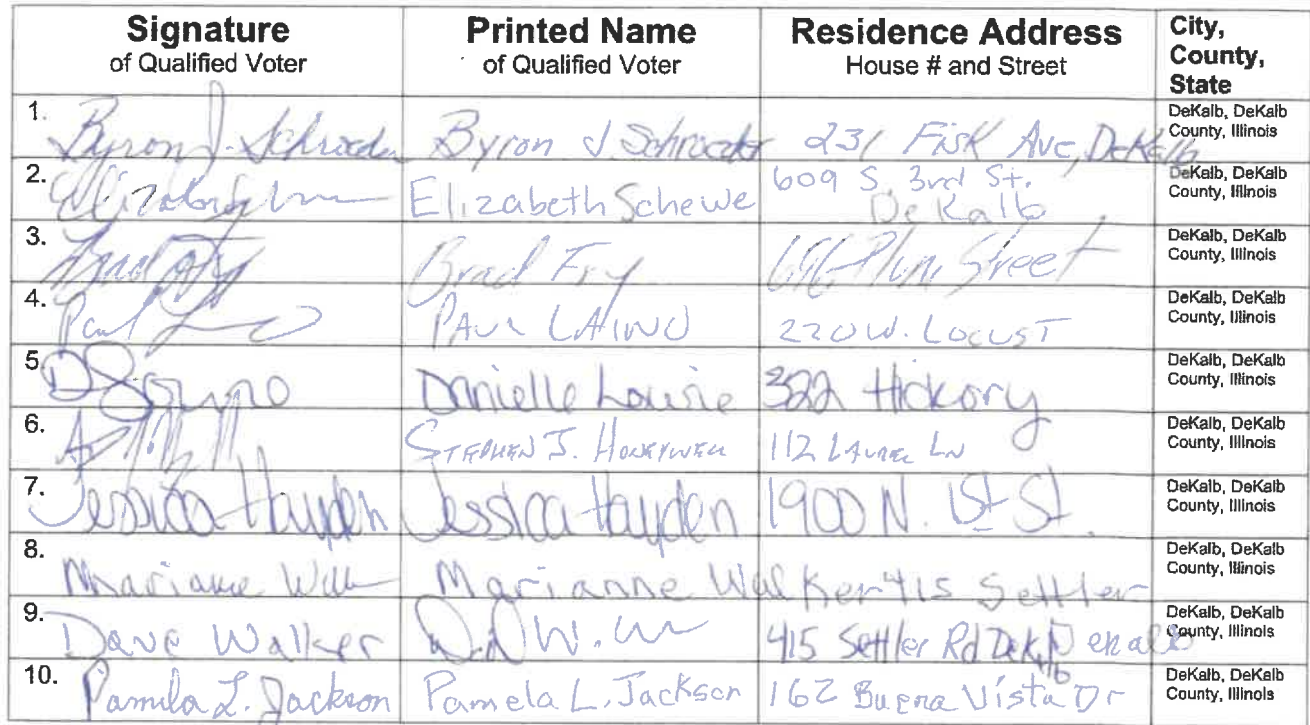 Signature Printed Name Residence Address City,
of Qualified Voter of Qualified Voter House # and Street County,
State
1. Byron J. Schroeder Byron J Schroeder 231 Fisk Ave, DeKalb DeKalb, DeKalb
County, Illinois
2. Elizabeth Schewe 609 S. 3rd St. DeKalb, DeKalb
DeKalb County, Illinois
3. Brad Fry Street DeKalb, DeKalb
County, Illinois
4. Paul PAUL LAINO 220 W. LOCUST DeKalb, DeKalb
County, Illinois
5 Danielle Louise 322 Hickory DeKalb, DeKalb
County, Illinois
6. STEPHEN J. HONEYWELL 112 LAUREL LN DeKalb, DeKalb
County, Illinois
7. Jessica Hayden Jessica Hayden 1900 N. 1st St. DeKalb, DeKalb
County, Illinois
8. Marianne Marianne Walker 415 Settler DeKalb, DeKalb
County, Illinois
9. Dave Walker 415 Settler Rd DeKalb DeKalb, DeKalb
County, Illinois
10. Pamela L. Jackson Pamela L. Jackson 162 Buena Vista Dr DeKalb, DeKalb
County, Illinois